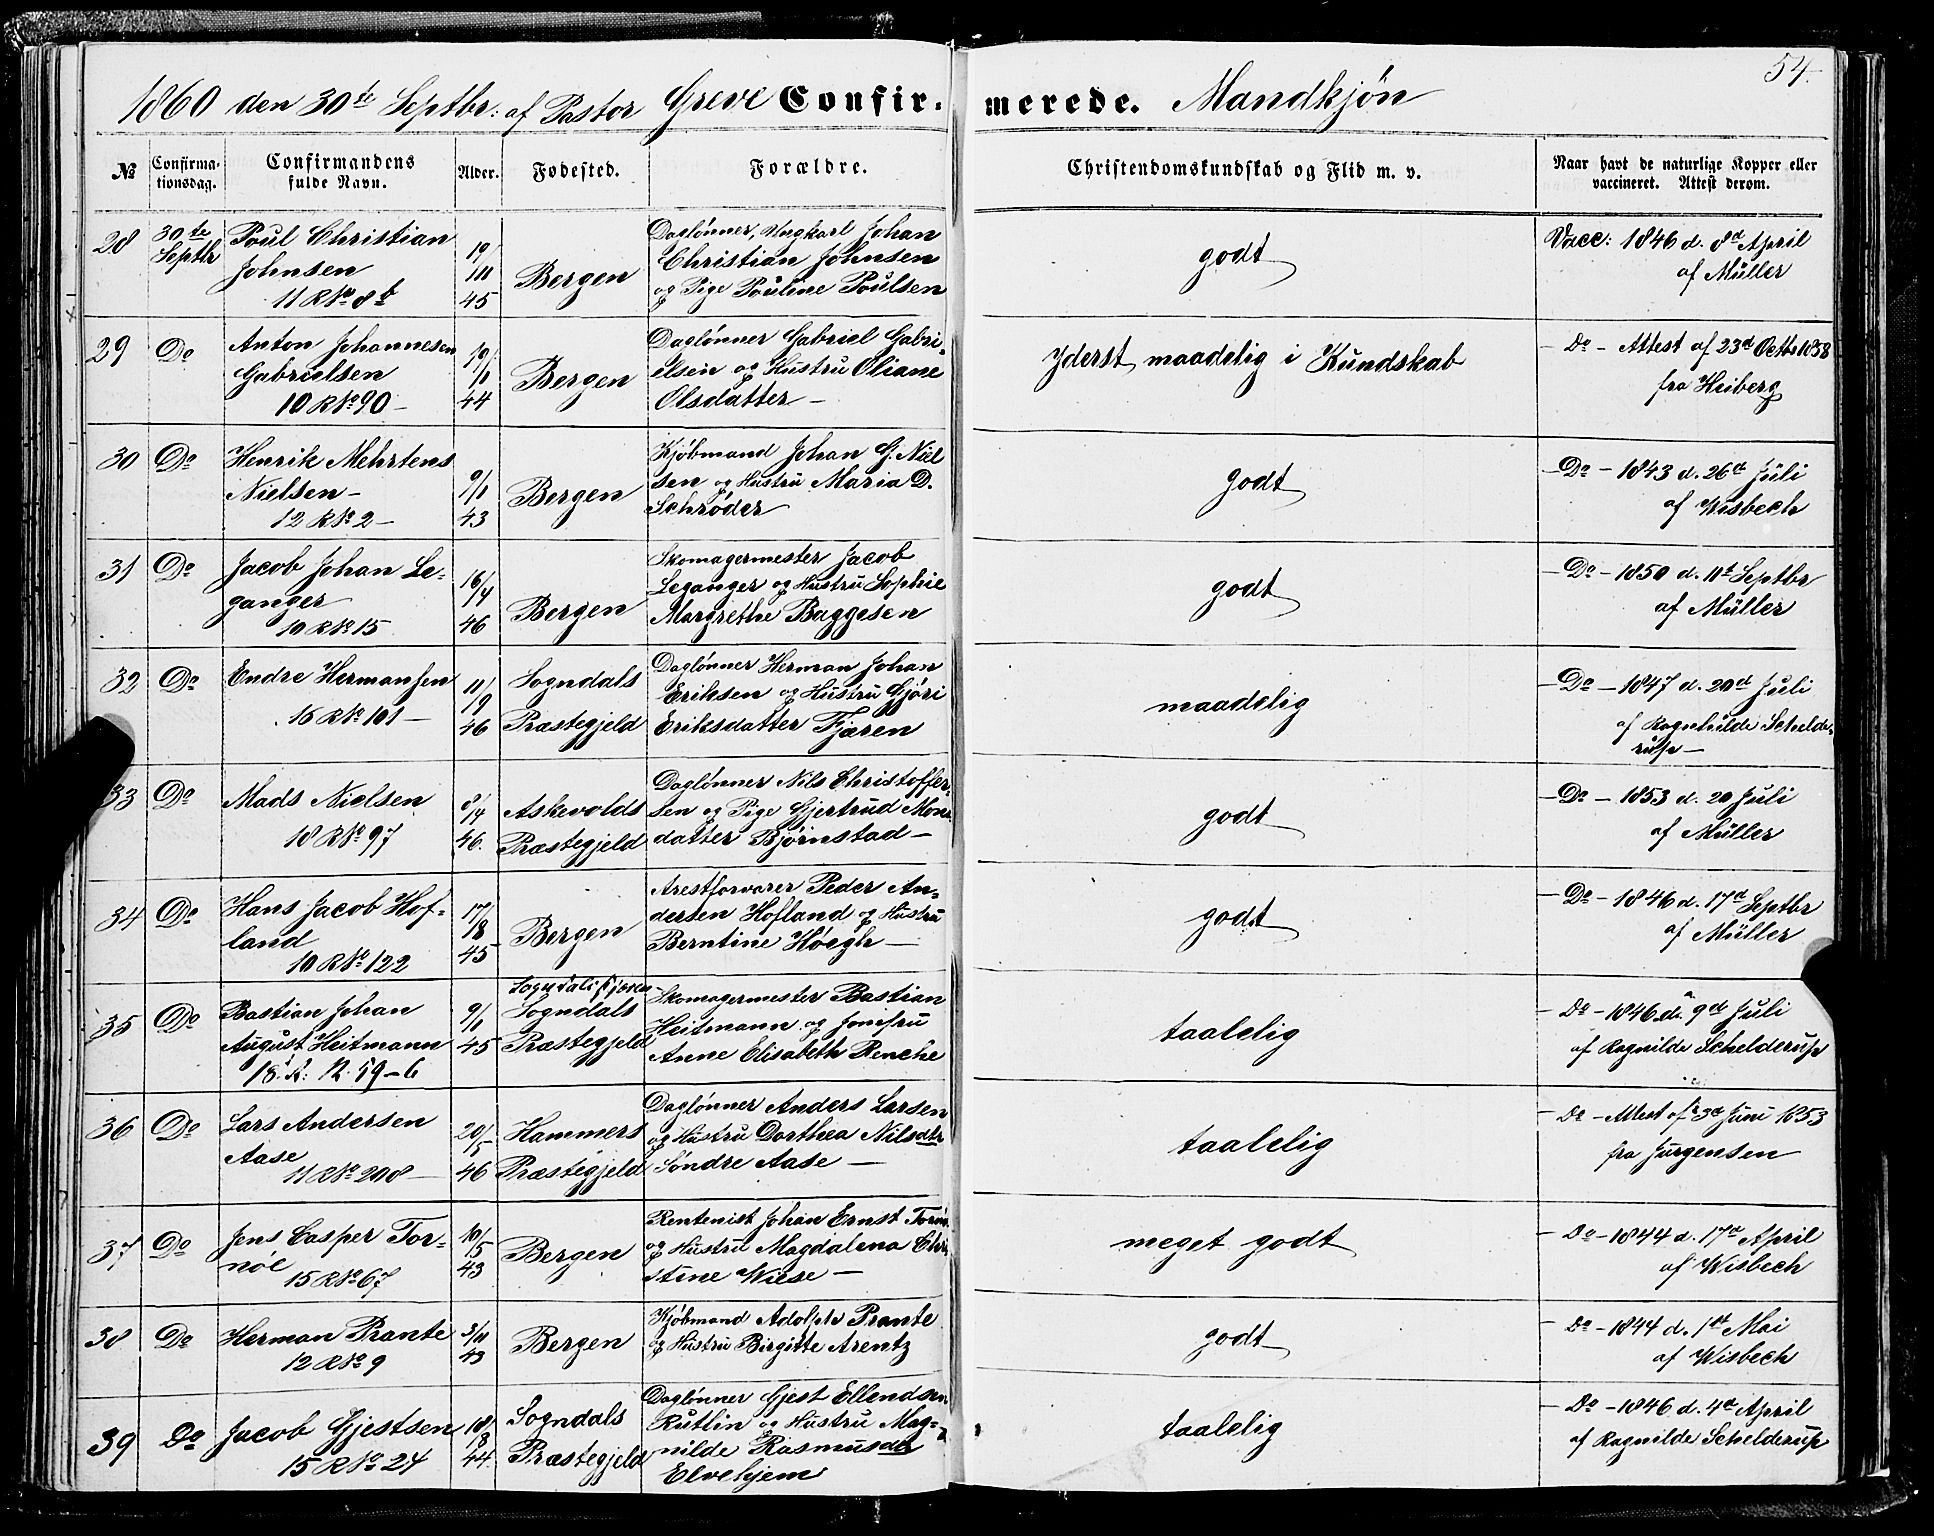 54.
1860 den 30te Septbr: af Pastor Greve Confir- merede. Mandkjøn
No Confirma-tionsdag. Confirmandens fulde Navn. Alder. Fødested. Forældre. Christendomskundskab og Flid m. v. Naar havt de naturlige Kopper eller vaccineret. Attest derom.
28 30te Septbr Poul Christian Daglønner, Ungkarl Johan Vacc: 1846 d. 8d April
Johnsen 45 Bergen Christian Johnsen godt af Müller
11 R No 8b og Pige Pouline Poulsen
29 Do Anton Johannesen 19/1 Daglønner Gabriel Gabri- Do - Attest af 23d Octbr 1858
Gabrielsen 44 Bergen elsen og Hustru Oliane Yderst maadelig i Kundskab fra Heiberg
10 R No 90 - Olsdatter -
30 Do Henrik Mehrtens 9/1 Kjøbmand Johan G. Niel Do - 1843 d. 26d Juli
Nielsen - 43 Bergen sen og Hustru Maria D. godt af Wisbech
12 R No 2 - Schrøder
31 Do Jacob Johan Le- 16/4 Skomagermester Jacob Do - 1850 d. 11t Septbr
ganger 46 Bergen Leganger og Hustru Sophie godt af Müller
10 R No 15 Margrethe Baggesen
32 Do Endre Hermansen 11/9 Sogndals Daglønner Herman Johan Do - 1847 d. 20d Juli
16 R No 101 - 46 Præstegjeld Eriksen og Hustru Gjøri maadelig af Ragnhilde Schelde-
Eriksdatter Fjæren rup -
33 Do Mads Nielsen 8/4 Askevolds Daglønner Nils Christoffer- Do - 1853 d. 20 Juli
18 R No 97 46. Præstegjeld sen og Pige Gjertrud Mons godt af Müller
datter Bjørnstad -
34 Do Hans Jacob Hof- 17/8 Arestforvarer Peder An- Do - 1846 d. 17d Septbr
land 45 Bergen dersen Hofland og Hustru godt af Müller
10 R No 122 Berntine Høegh -
Sogndalsfjæren
35 Do Bastian Johan 9/1 Sogndals Skomagermester Bastian Do - 1846 d. 9d Juli
August Heitmann 45 Præstegjeld Heitmann og Jomfru taalelig af Ragnilde Schelderup
18. R: N. 59-6 Anne Elisabeth Renche
36 Do Lars Andersen 20/5 Hammers Daglønner Anders Larsen Do - Attest af 3d Juni 1853
Aase 46 Præstegjeld og Hustru Dorthea Nilsdtr taalelig fra Jürgensen
11 R No 208 - Søndre Aase -
37 Do Jens Casper Tor- 10/5 Rentenist Johan Ernst Do - 1844 d. 17d April
nöe 43 Bergen og Hustru Magdalena Chri meget godt af Wisbech
15 R No 67 stine Wiese -
38 Do Herman Prante 3/11 Kjøbmand Adolph Prante Do - 1844 d. 1st Mai
12 R No 9 43 Bergen og Hustru Birgitte Arentz godt af Wisbech
39 Do Jacob Gjestsen Sogndals Daglønner Gjest Ellendsen Do - 1846 d. 4d April
15 R No 24 44. Præstegjeld Rutlin og Hustru Mag- taalelig af Ragnilde Schelderup
nilde Rasmusdtr
Elvehjem